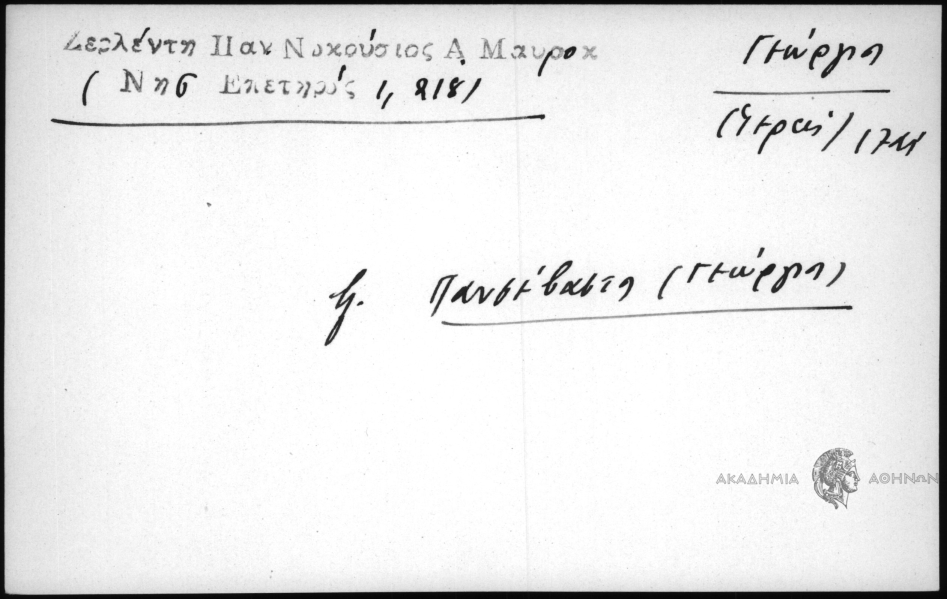 Ζερλέντη Παν Νικούσιος Α Μαυροκ
( Νησ Επετηρίς 1, 218)
Γεώργιο
1711
βλ. Πανσέβαστο (Γεώργιο)
ΑΚΑΔΗΜΙΑ ΑΘΗΝΩΝ